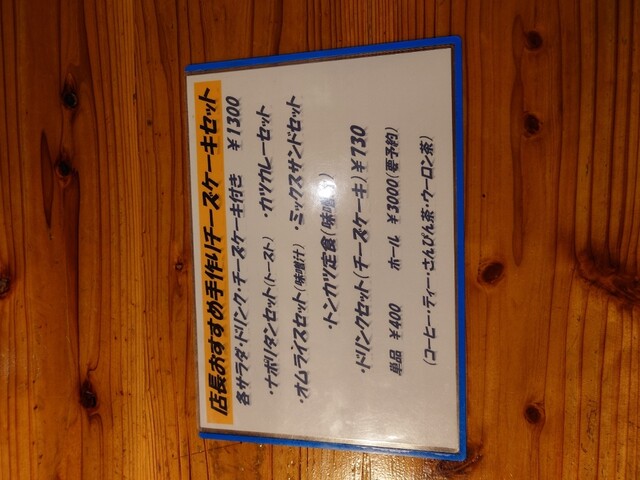 店長おすすめ手作りチーズケーキセット
各サラダ・ドリンク・チーズケーキ付き ¥1300
・ナポリタンセット(トースト) ・カツカレーセット
・オムライスセット(味噌汁) ・ミックスサンドセット
・トンカツ定食(味噌汁)
・ドリンクセット(チーズケーキ)¥730
単品 ¥400 ホール ¥3000(要予約)
(コーヒー・ティー・さんぴん茶・ウーロン茶)